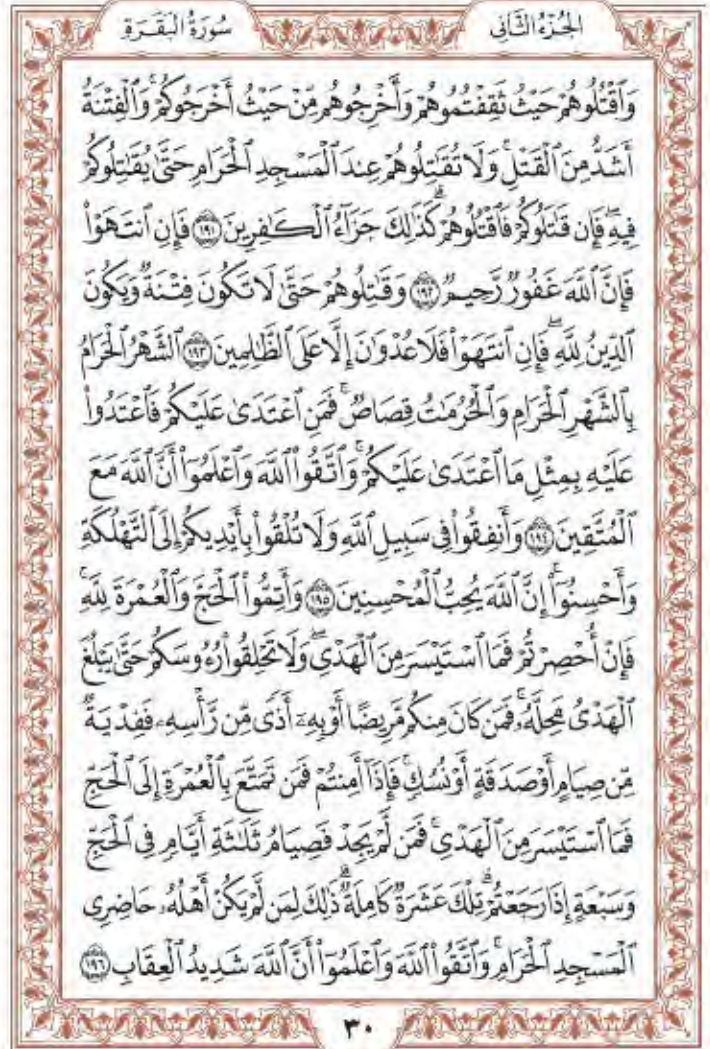 الجُزْءُ الثَّانِى
سُورَةُ الْبَقَرَةِ
وَٱقْتُلُوهُمْ حَيْثُ ثَقِفْتُمُوهُمْ وَأَخْرِجُوهُم مِّنْ حَيْثُ أَخْرَجُوكُمْ ۚ وَٱلْفِتْنَةُ
أَشَدُّ مِنَ ٱلْقَتْلِ ۚ وَلَا تُقَٰتِلُوهُمْ عِندَ ٱلْمَسْجِدِ ٱلْحَرَامِ حَتَّىٰ يُقَٰتِلُوكُمْ
فِيهِ ۖ فَإِن قَٰتَلُوكُمْ فَٱقْتُلُوهُمْ ۗ كَذَٰلِكَ جَزَآءُ ٱلْكَٰفِرِينَ ۝١٩١ فَإِنِ ٱنتَهَوْا۟
فَإِنَّ ٱللَّهَ غَفُورٌ رَّحِيمٌ ۝١٩٢ وَقَٰتِلُوهُمْ حَتَّىٰ لَا تَكُونَ فِتْنَةٌ وَيَكُونَ
ٱلدِّينُ لِلَّهِ ۖ فَإِنِ ٱنتَهَوْا۟ فَلَا عُدْوَٰنَ إِلَّا عَلَى ٱلظَّٰلِمِينَ ۝١٩٣ ٱلشَّهْرُ ٱلْحَرَامُ
بِٱلشَّهْرِ ٱلْحَرَامِ وَٱلْحُرُمَٰتُ قِصَاصٌ ۚ فَمَنِ ٱعْتَدَىٰ عَلَيْكُمْ فَٱعْتَدُوا۟
عَلَيْهِ بِمِثْلِ مَا ٱعْتَدَىٰ عَلَيْكُمْ ۚ وَٱتَّقُوا۟ ٱللَّهَ وَٱعْلَمُوٓا۟ أَنَّ ٱللَّهَ مَعَ
ٱلْمُتَّقِينَ ۝١٩٤ وَأَنفِقُوا۟ فِى سَبِيلِ ٱللَّهِ وَلَا تُلْقُوا۟ بِأَيْدِيكُمْ إِلَى ٱلتَّهْلُكَةِ
وَأَحْسِنُوٓا۟ ۛ إِنَّ ٱللَّهَ يُحِبُّ ٱلْمُحْسِنِينَ ۝١٩٥ وَأَتِمُّوا۟ ٱلْحَجَّ وَٱلْعُمْرَةَ لِلَّهِ ۚ
فَإِنْ أُحْصِرْتُمْ فَمَا ٱسْتَيْسَرَ مِنَ ٱلْهَدْىِ ۖ وَلَا تَحْلِقُوا۟ رُءُوسَكُمْ حَتَّىٰ يَبْلُغَ
ٱلْهَدْىُ مَحِلَّهُۥ ۚ فَمَن كَانَ مِنكُم مَّرِيضًا أَوْ بِهِۦٓ أَذًى مِّن رَّأْسِهِۦ فَفِدْيَةٌ
مِّن صِيَامٍ أَوْ صَدَقَةٍ أَوْ نُسُكٍ ۚ فَإِذَآ أَمِنتُمْ فَمَن تَمَتَّعَ بِٱلْعُمْرَةِ إِلَى ٱلْحَجِّ
فَمَا ٱسْتَيْسَرَ مِنَ ٱلْهَدْىِ ۚ فَمَن لَّمْ يَجِدْ فَصِيَامُ ثَلَٰثَةِ أَيَّامٍ فِى ٱلْحَجِّ
وَسَبْعَةٍ إِذَا رَجَعْتُمْ ۗ تِلْكَ عَشَرَةٌ كَامِلَةٌ ۗ ذَٰلِكَ لِمَن لَّمْ يَكُنْ أَهْلُهُۥ حَاضِرِى
ٱلْمَسْجِدِ ٱلْحَرَامِ ۚ وَٱتَّقُوا۟ ٱللَّهَ وَٱعْلَمُوٓا۟ أَنَّ ٱللَّهَ شَدِيدُ ٱلْعِقَابِ ۝١٩٦
٣٠